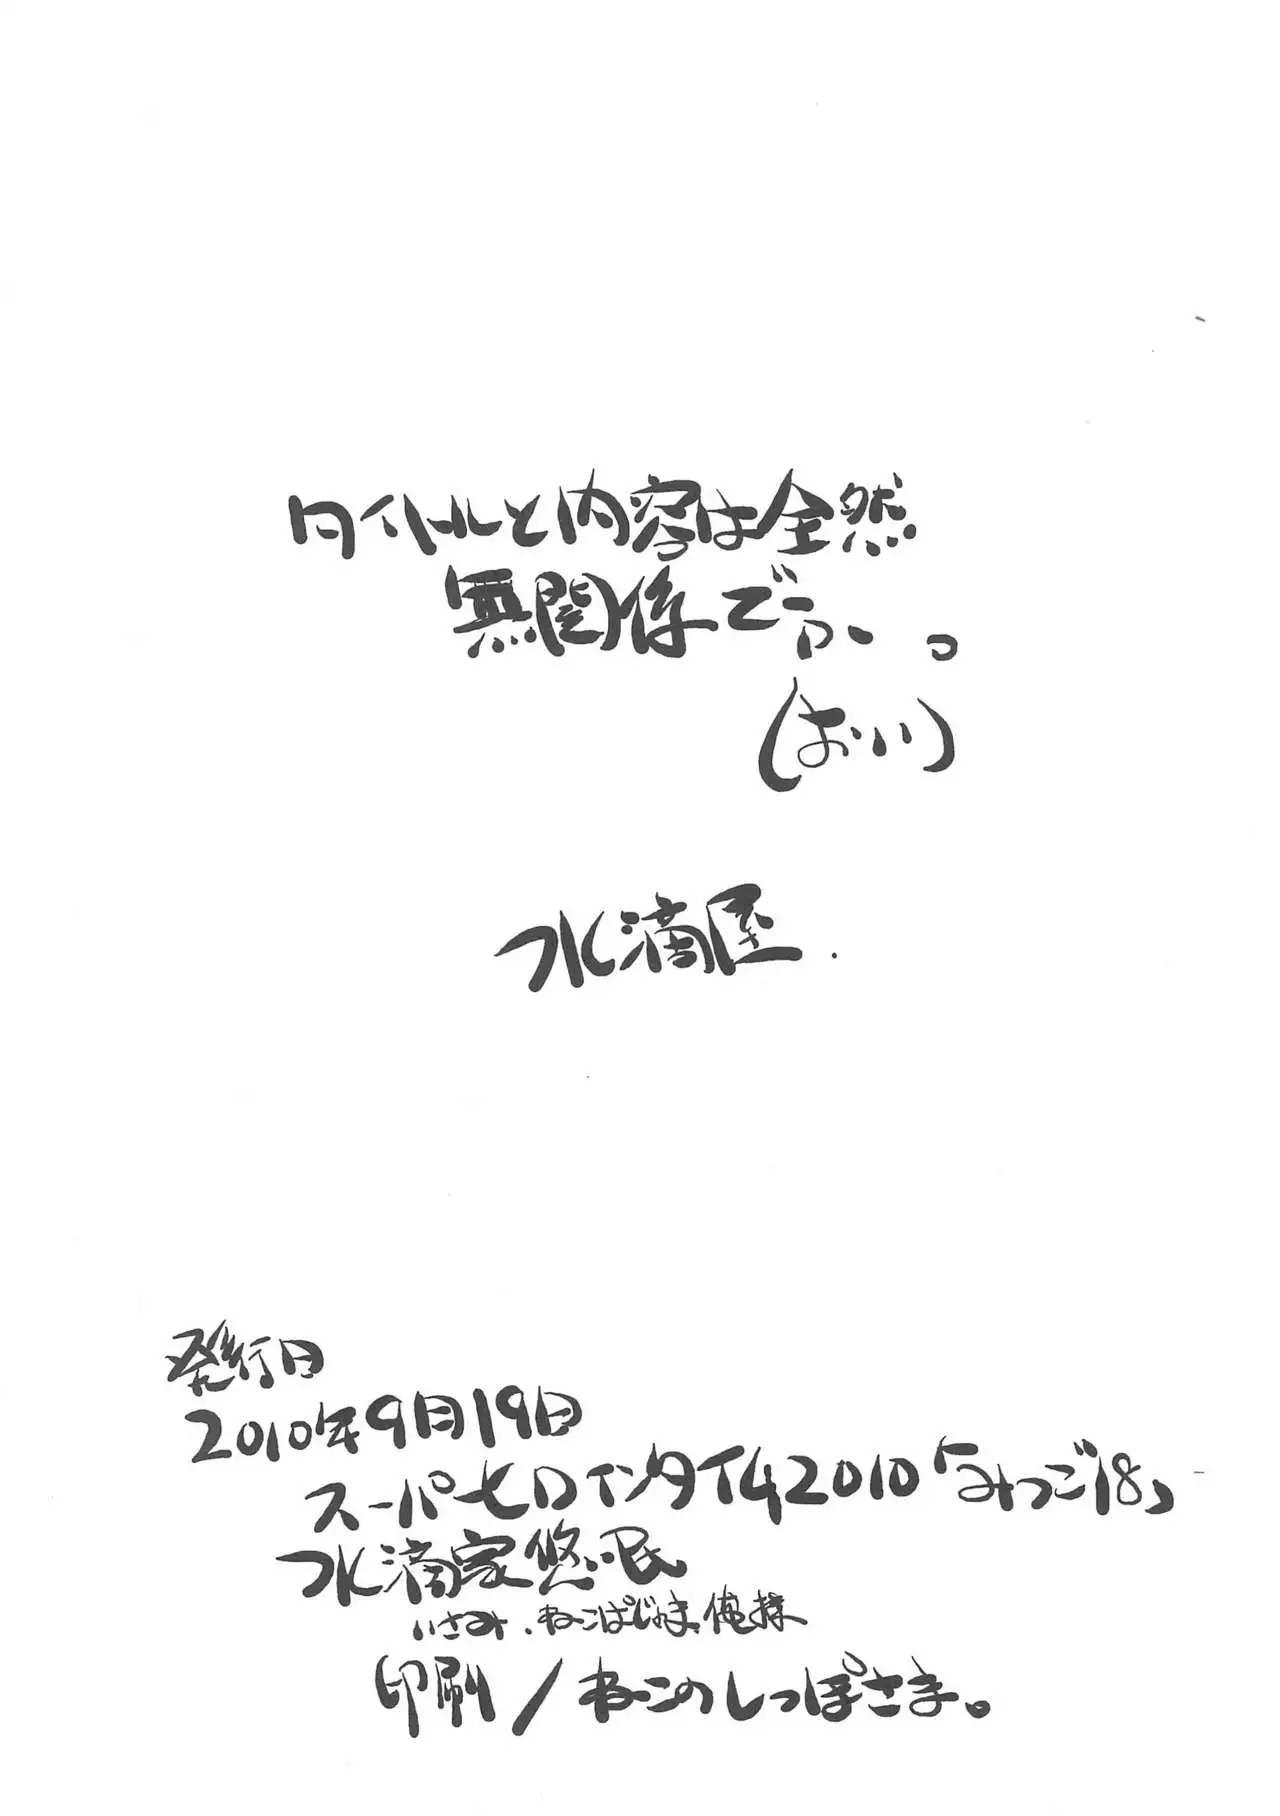 タイトルと内容は全然
無関係でぅ〜。
(おいい)
水滴屋.
発行日
2010年9月19日
スーパーヒロインタイム2010「みつご18」
水滴家悠民
いさみ、ねこぱじゃま、俺様
印刷/ねこのしっぽさま。